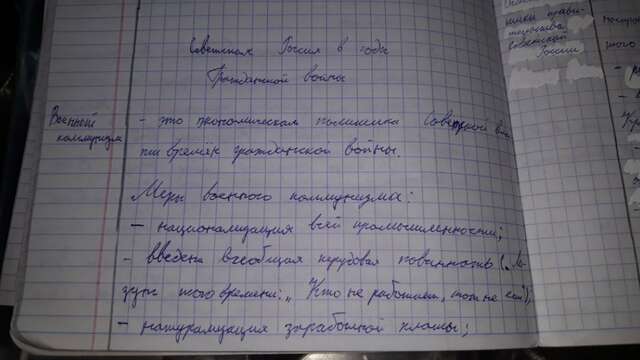 Советская Россия в годы
Гражданской войны
Военный
коммунизм
- это экономическая политика Советской вла
сти времен гражданской войны.
Меры военного коммунизма:
- национализация всей промышленности;
- введена всеобщая трудовая повинность („Ло-
зунг того времени: „Кто не работает, тот не ест");
- натурализация заработной платы;
тики прави-
тельства
Советской
России
этого